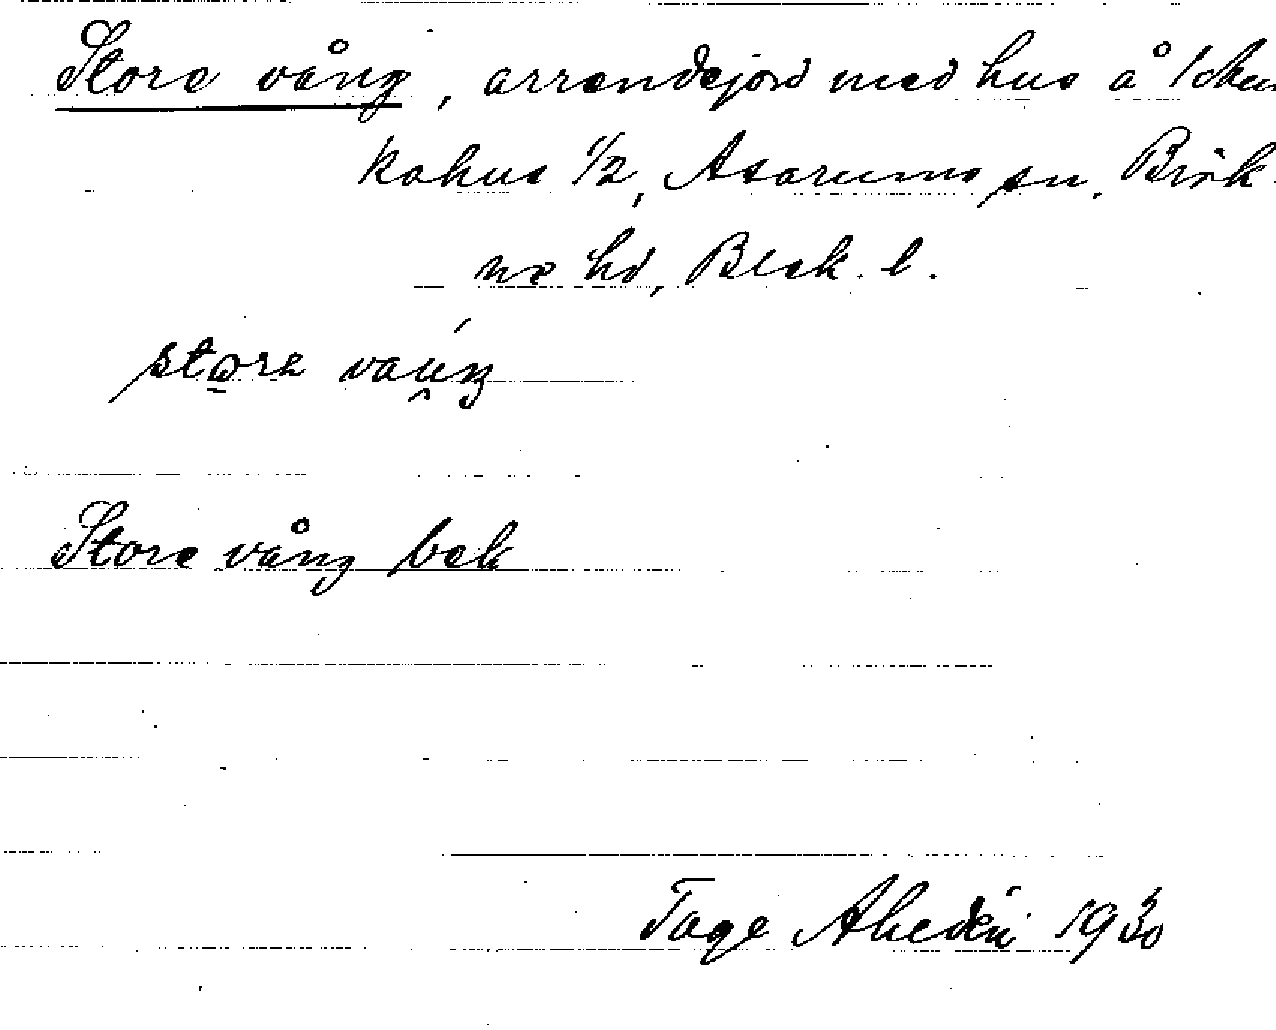 Store vång, arrendejord med hus å
kahus 1/2, Asarums sn, Bräk-
ne hd, Blek. l.
store vaúŋ
Store vång bek
Tage Ahedén 1930